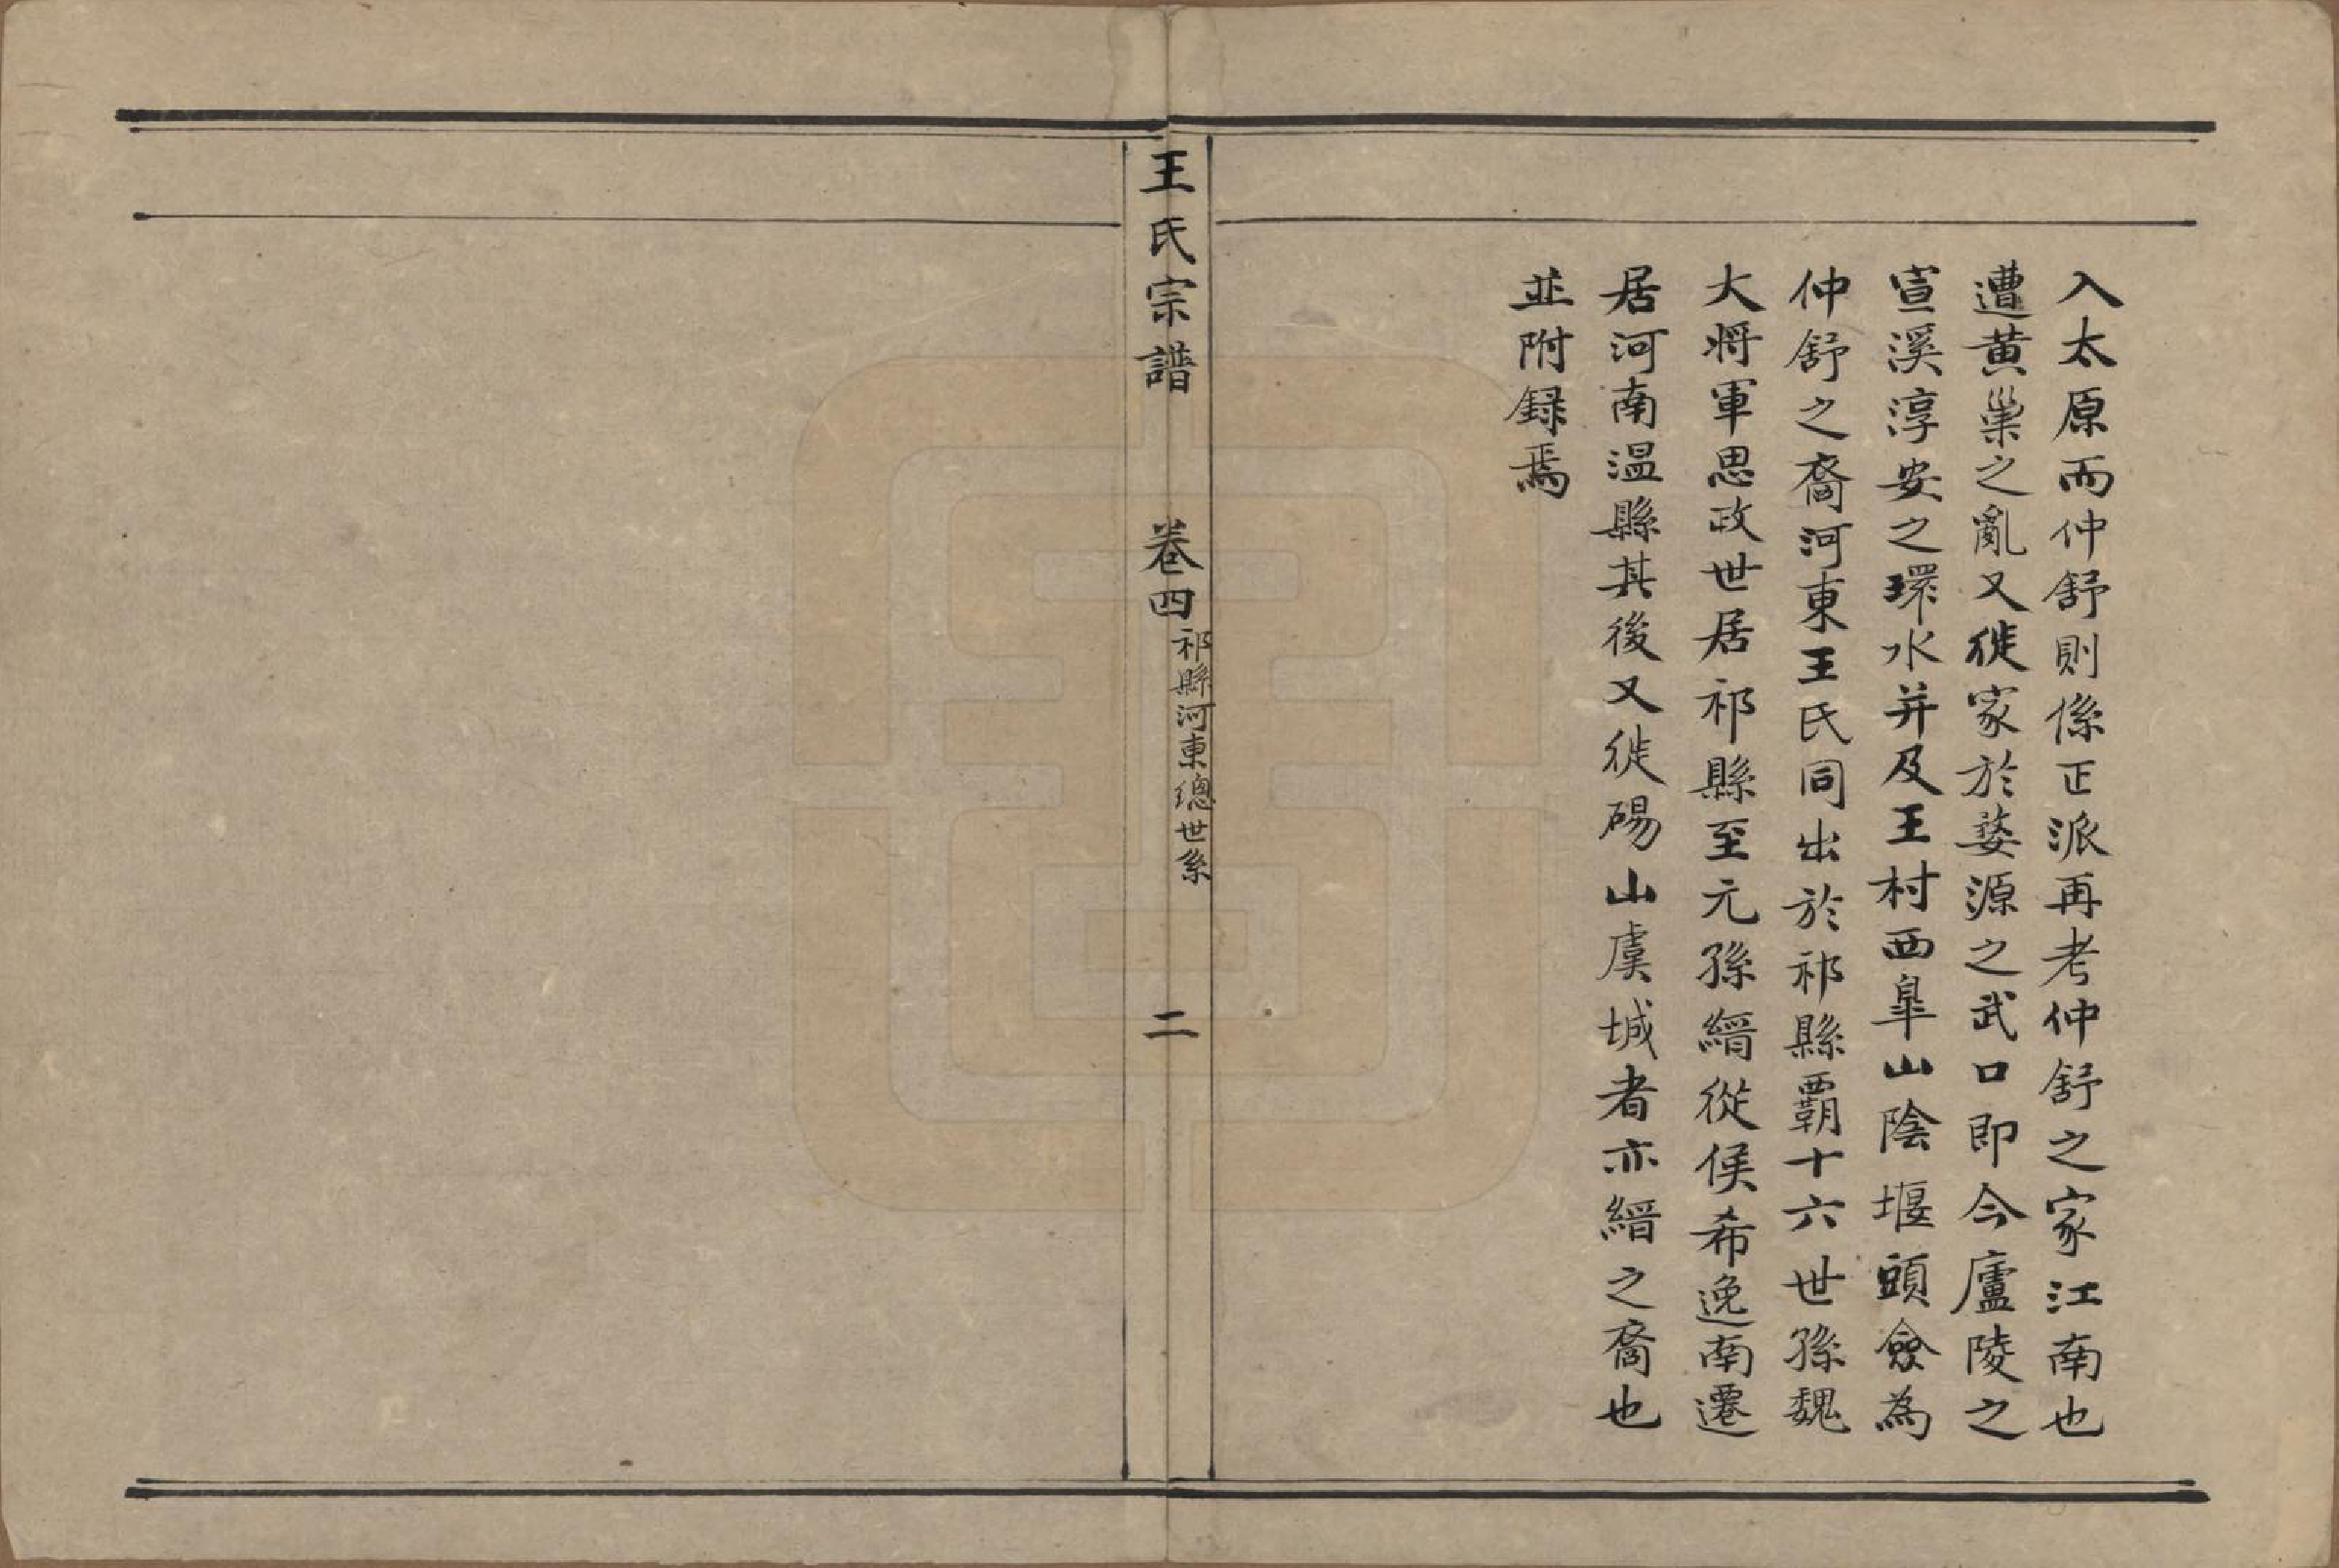 入太原而仲舒則係正派再考仲舒之家江南也
遭黃巢之亂又徙家於婺源之武口即今廬陵之
宣溪淳安之環水并及王村西臯山陰堰頭僉為
仲舒之裔河東王氏同出於祁縣霸十六世孫魏
大將軍思政世居祁縣至元孫縉從侯希逸南遷
居河南温縣其後又徙碭山虞城者亦縉之裔也
並附録焉
王氏宗譜 卷四 祁縣河東總世系 二